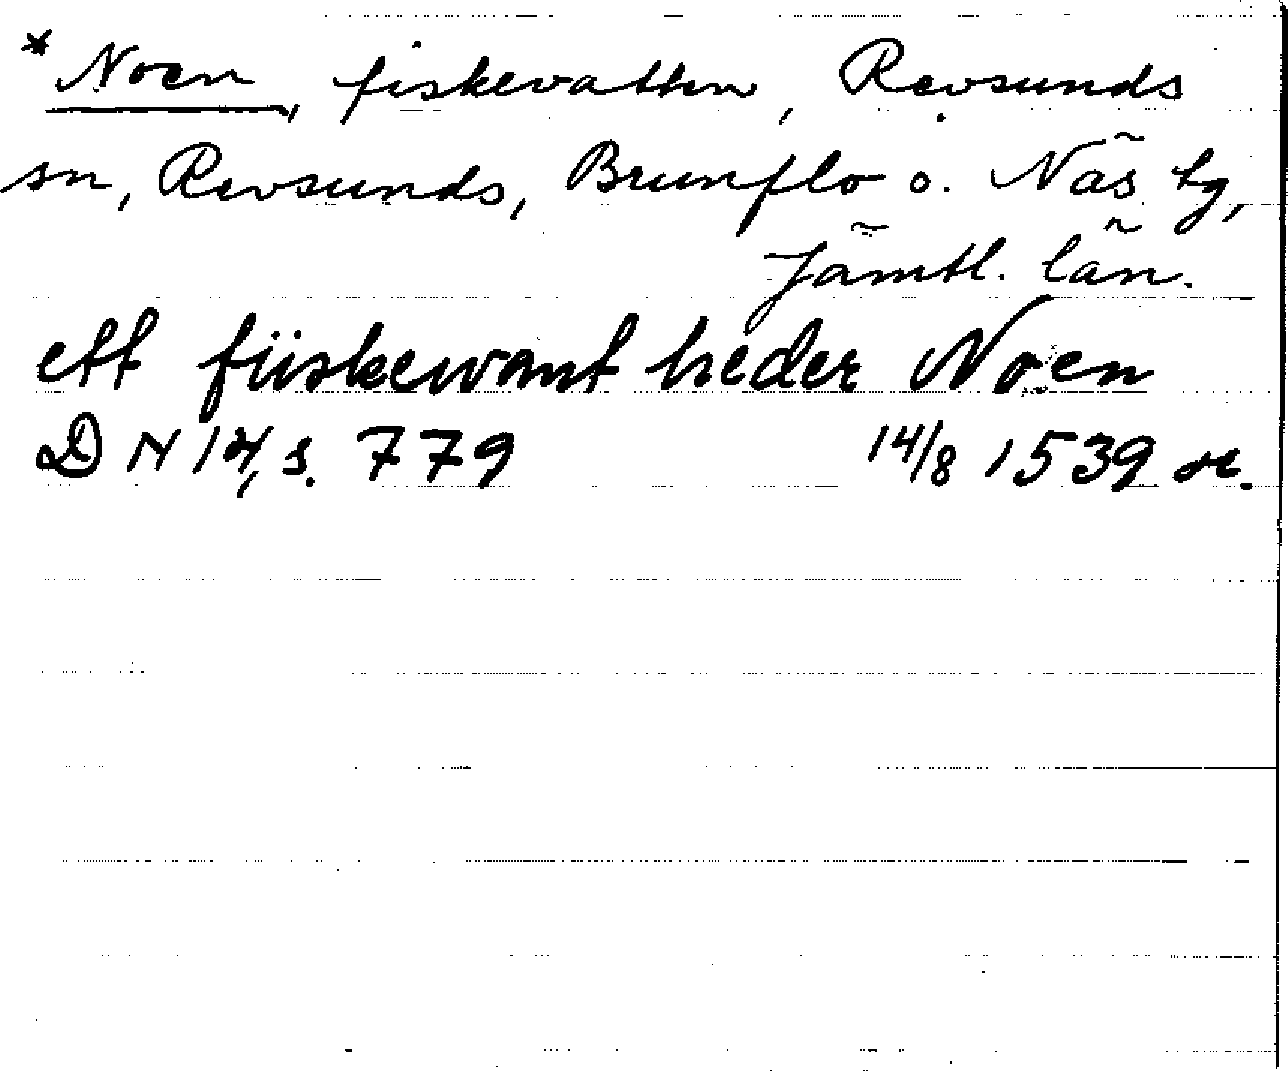 * Noen, fiskevatten, Revsunds
sn, Revsunds, Brunflo o. Näs tg,
Jämtl. län.
ett fiiskewant heder Noen
DN 14, s. 779 14/8 1539 or.